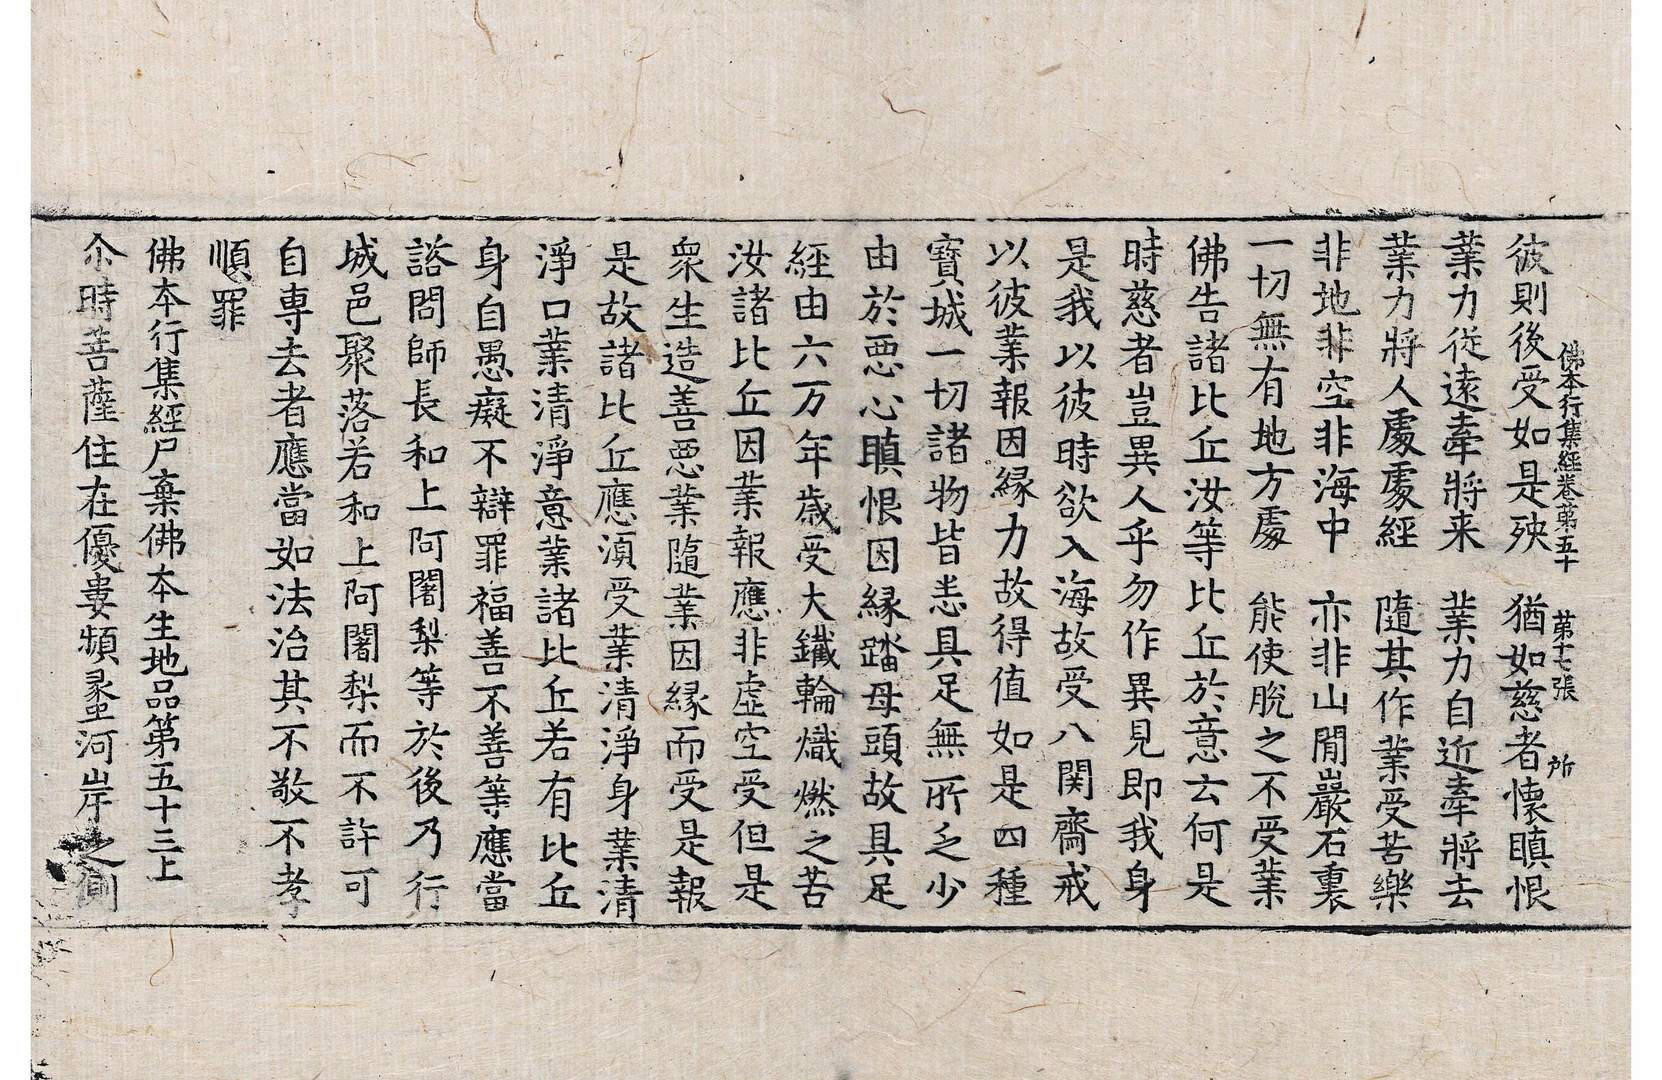 佛本行集經卷第五十　第十七張　所
彼則後受如是殃　猶如慈者懷瞋恨
業力從遠牽將来　業力自近牽將去
業力將人處處經　隨其作業受苦樂
非地非空非海中　亦非山閒巖石裏
一切無有地方處　能使脫之不受業
佛告諸比丘汝等比丘於意云何是
時慈者豈異人乎勿作異見即我身
是我以彼時欲入海故受八関齋戒
以彼業報因縁力故得值如是四種
寶城一切諸物皆悉具足無所乏少
由於悪心瞋恨因縁蹹母頭故具足
經由六万年歲受大鐵輪熾燃之苦
汝諸比丘因業報應非虛空受但是
衆生造善悪業隨業因縁而受是報
是故諸比丘應湏受業清淨身業清
淨口業清淨意業諸比丘若有比丘
身自愚癡不辯罪福善不善等應當
諮問師長和上阿闍梨等於後乃行
城邑聚落若和上阿闍梨而不許可
自専去者應當如法治其不敬不孝
順罪
佛本行集經尸棄佛本生地品第五十三上
尒時菩薩住在優婁頻蠡河岸之側